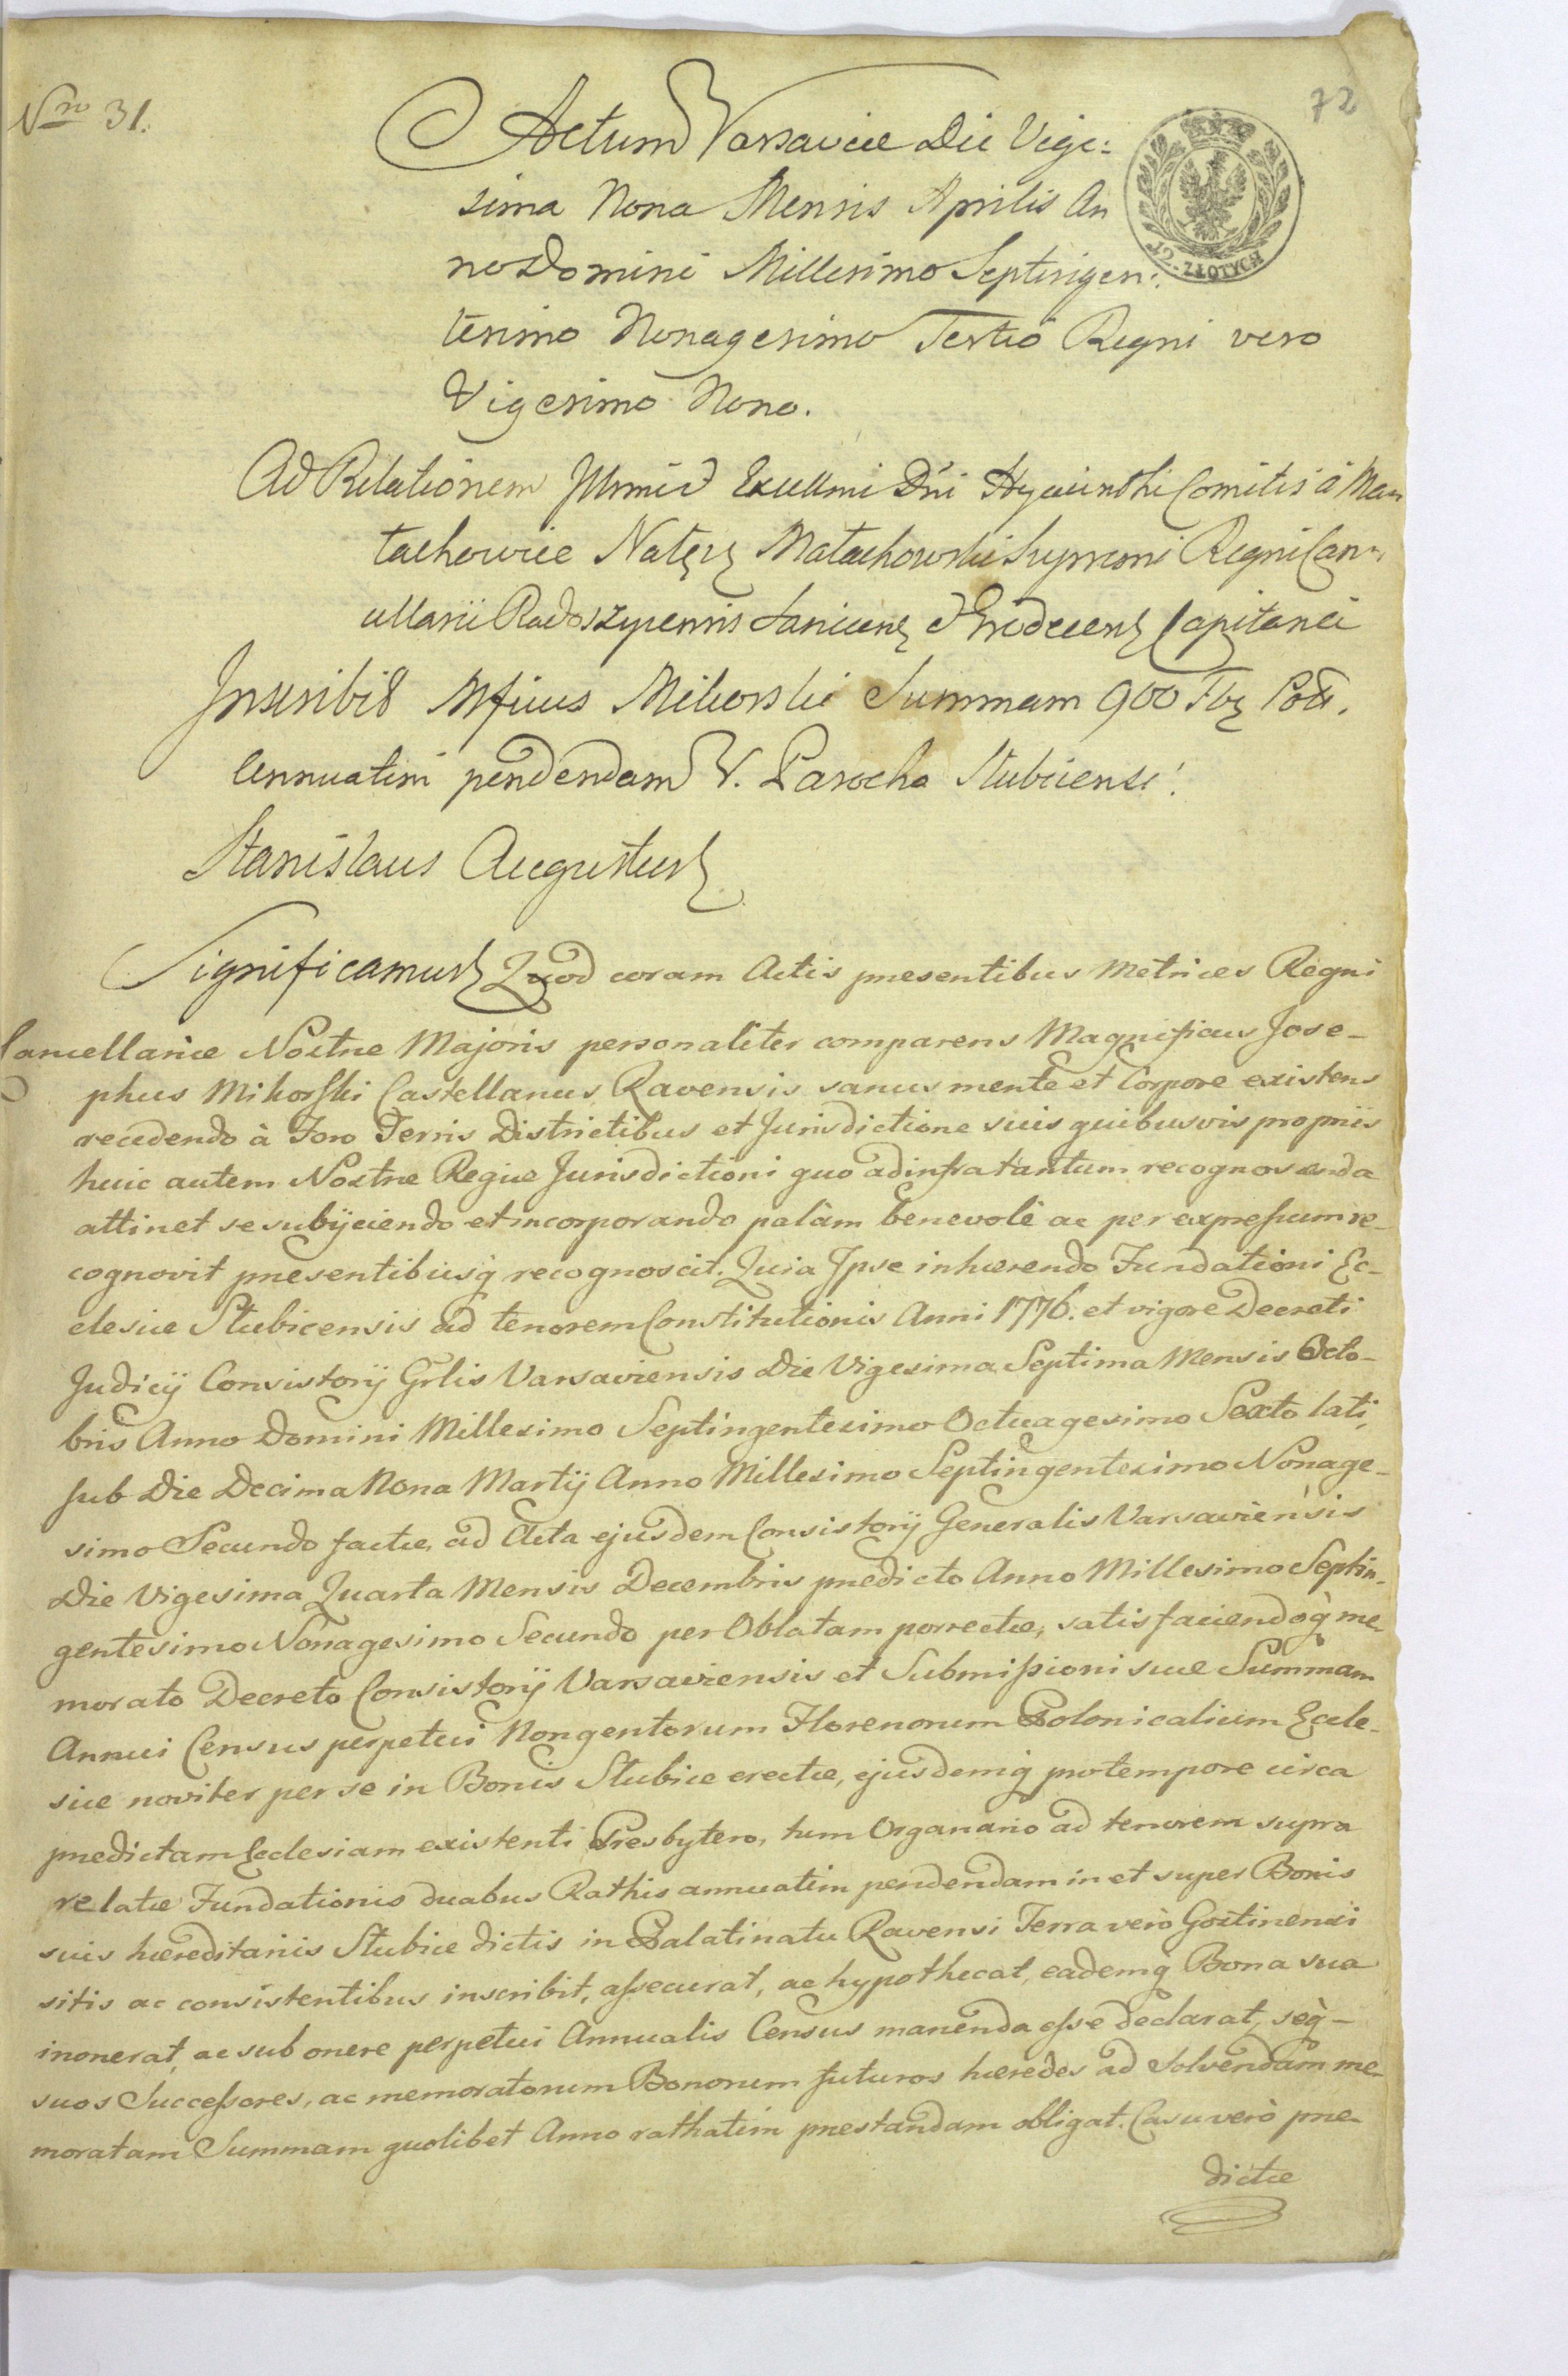 Nro 31.
72
Actum Varsaviæ Die Vige:
sima Nona Mensis Aprilis An
no Domini Millesimo Septingen:
tesimo Nonagesimo Tertio Regni vero
Vigesimo Nono.
12. ZŁOTYCH
Ad Relationem Illmi & Excellmi Dni Hyacinthi Comitis à Ma
łachowice Nałęcz Małachowski Supremi Regni Can:
cellarii Radoszycensis Sanicens & Grodecens Capitanei
Inscribit Mficus Mikorski Summam 900 Flor Pol.
Annuatim pendendam V. Parocho Stubicensi.
Stanislaus Augustus
Significamus Quod coram Actis præsentibus Metrices Regni
Cancellariæ Nostræ Majoris personaliter comparens Magnificus Jose-
phus Mikorski Castellanus Ravensis sanus mente et Corpore existens
recedendo à Foro Terris Districtibus et Jurisdictione suis quibusvis propriis
huic autem Nostræ Regiæ Jurisdictioni quo ad infra tantum recognoscenda
attinet se subijciendo et incorporando palàm benevolè ac per expressum re-
cognovit præsentibusq recognoscit. Quia Ipse inhærendo Fundationi Ec-
clesiæ Stubicensis ad tenorem Constitutionis Anni 1776. et vigore Decreti
Judicij Consistorij Grlis Varsaviensis Die Vigesima Septima Mensis Octo-
bris Anno Domini Millesimo Septingentesimo Octuagesimo Sexto lati,
sub Die Decima Nona Martij Anno Millesimo Septingentesimo Nonage-
simo Secundo factæ, ad Acta ejusdem Consistorij Generalis Varsaviensis
Die Vigesima Quarta Mensis Decembris prædicto Anno Millesimo Septin-
gentesimo Nonagesimo Secundo per Oblatam porrectæ, satisfaciendoq me-
morato Decreto Consistorij Varsaviensis et Submissioni suæ Summam
Annui Census perpetui Nongentorum Florenorum Polonicalium Eccle-
siæ noviter per se in Bonis Stubice erectæ, ejusdemq pro tempore circa
prædictam Ecclesiam existenti Presbytero, tum Organario ad tenorem supra
relatæ Fundationis duabus Rathis annuatim pendendam in et super Bonis
suis hæreditariis Stubice dictis in Palatinatu Ravensi Terra verò Gostinensi
sitis ac consistentibus inscribit, assecurat, ac hypothecat, eademq Bona sua
inonerat, ac sub onere perpetui Annualis Census manenda esse declarat, seq-
suos Successores, ac memoratorum Bonorum futuros hæredes ad Solvendam me-
moratam Summam quolibet Anno rathatim præstandam obligat. Casu verò præ-
dictæ